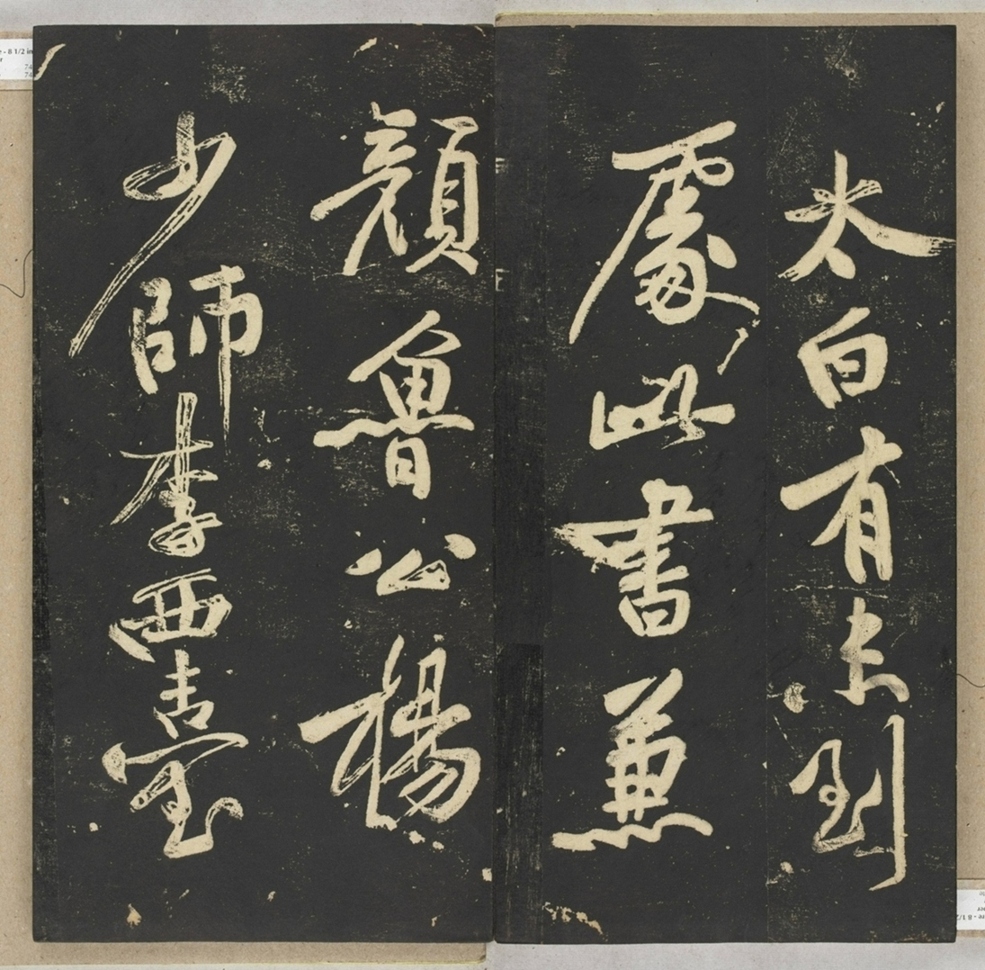 太白有未到
處此書兼
顏魯公楊
少師李西臺